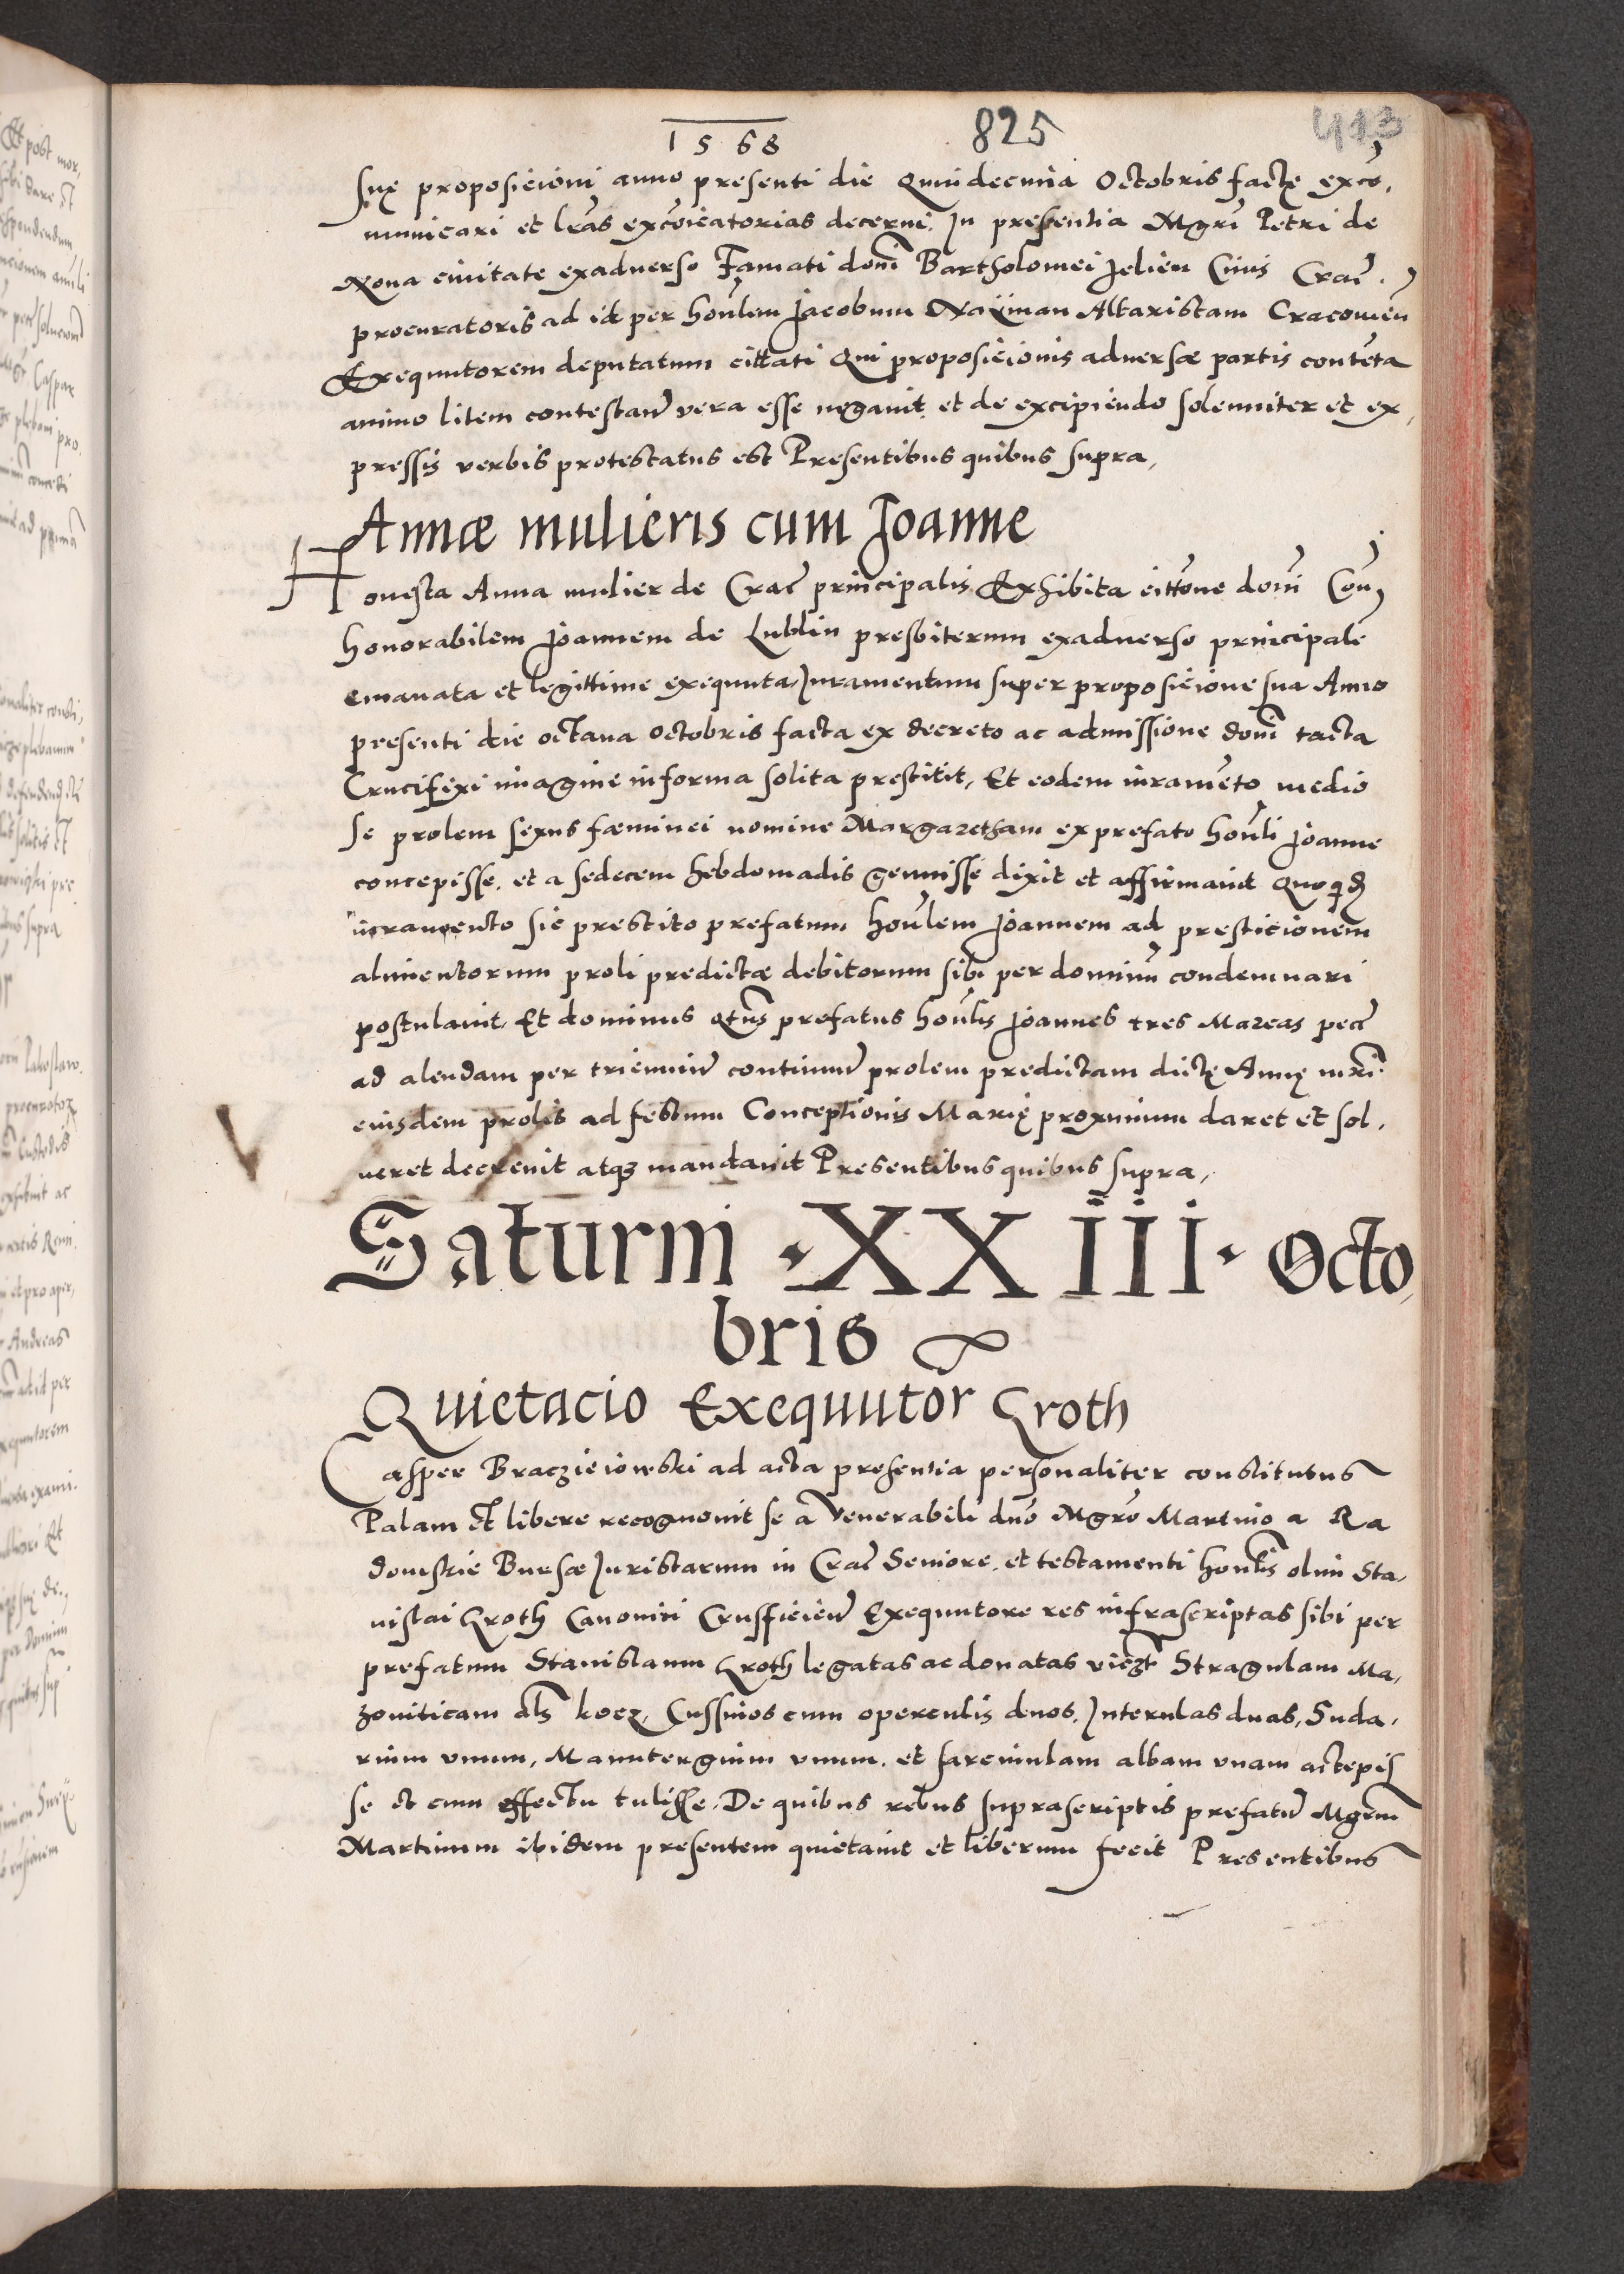 1568 825 413
suę proposicioni anno presenti die Quindecima Octobris factę exco,
municari et lrãs excõicatorias decerni. In presentia Mgrĩ Petri de
Noua ciuitate exaduerso Famati domĩ Bartholomei Jelien Ciuis Crac̃.
procuratoris ad id per honlem Jacobum Naÿman Altaristam Cracouień
Exequutorem deputatum cittati Qui proposicionis aduersæ partis contẽta
animo litem contestañ vera esse negauit. et de excipiendo solenniter et ex,
pressis verbis protestatus est Presentibus quibus supra,
Annæ mulieris cum Joanne
Honesta Anna mulier de Crac̃ principalis Exhibita cittõne domĩ Coñ
honorabilem Joannem de Lublin presbiterum exaduerso principalẽ
emanata et legittime exequuta, Juramentum super proposicione sua Anno
presenti die octaua Octobris facta ex decreto ac admissione domĩ tacta
Crucifixi imagine in forma solita prestitit, Et eodem iuramẽto medio
se prolem sexus fæminei nomine Margaretham ex prefato honli Joanne
concepisse, et a sedecem hebdomadis genuisse dixit et affirmauit Quoquid
iuramento sic prestito prefatum honlem Joannem ad presticionem
alimentorum proli predictæ debitorum sibi per dominũ condemnari
postulauit, Et dominus attñs prefatus honlis Joannes tres Marcas pec̃
ad alendam per trienniũ continuũ prolem predictam dictę Annę mr̃i
eiusdem prolis ad festum Conceptionis Marię proximum daret et sol,
ueret decreuit atqꝫ mandauit Presentibus quibus supra,
Saturni · XXIII · Octo,
bris
Quietacio Exequutor Groth
Casper Braczieiowski ad acta presentia personaliter constitutus
Palam et libere recognouit se a Venerabili dnõ Mgrõ Martino a Ra
domskie Bursæ Juristarum in Crac̃ Seniore, et testamenti honlis olim Sta,
nislai Groth Canonici Crusficień Exequutore res infrascriptas sibi per
prefatum Stanislaum Groth legatas ac donatas viczt Stragulam Ma,
zouiticam als kocz, Cussinos cum operculis duos, Internlas duas, Suda,
rium vnum, Manutergium vnum, et sarcinulam albam vnam accepis
se et cum effectu tulisse, De quibus rebus suprascriptis prefatũ Mgrm̃
Martinum ibidem presentem quietauit et liberum fecit Presentibus